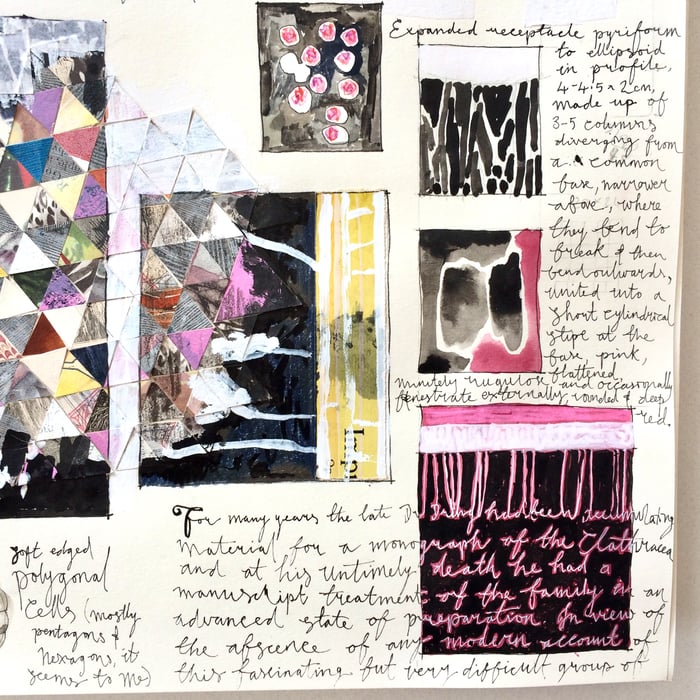 Expanded receptacle pyriform
to ellipsoid
in profile,
4-4.5 x 2cm,
made up of
3-5 columns
diverging from
a common
base, narrower
above, where
they tend to
break & then
bend outwards,
united into a
short cylindrical
stipe at the
base, pink,
flattened
minutely rugulose and occasionally
fenestrate externally, rounded & deep
red.
For many years the late Dr Dring had been accumulating
material for a monograph of the Clathraceae
and at his untimely death he had a
manuscript treatment of the family in an
advanced state of preparation. In view of
the absence of any modern account of
this fascinating but very difficult group of
soft edged
polygonal
cells (mostly
pentagons &
hexagons, it
seems to me)